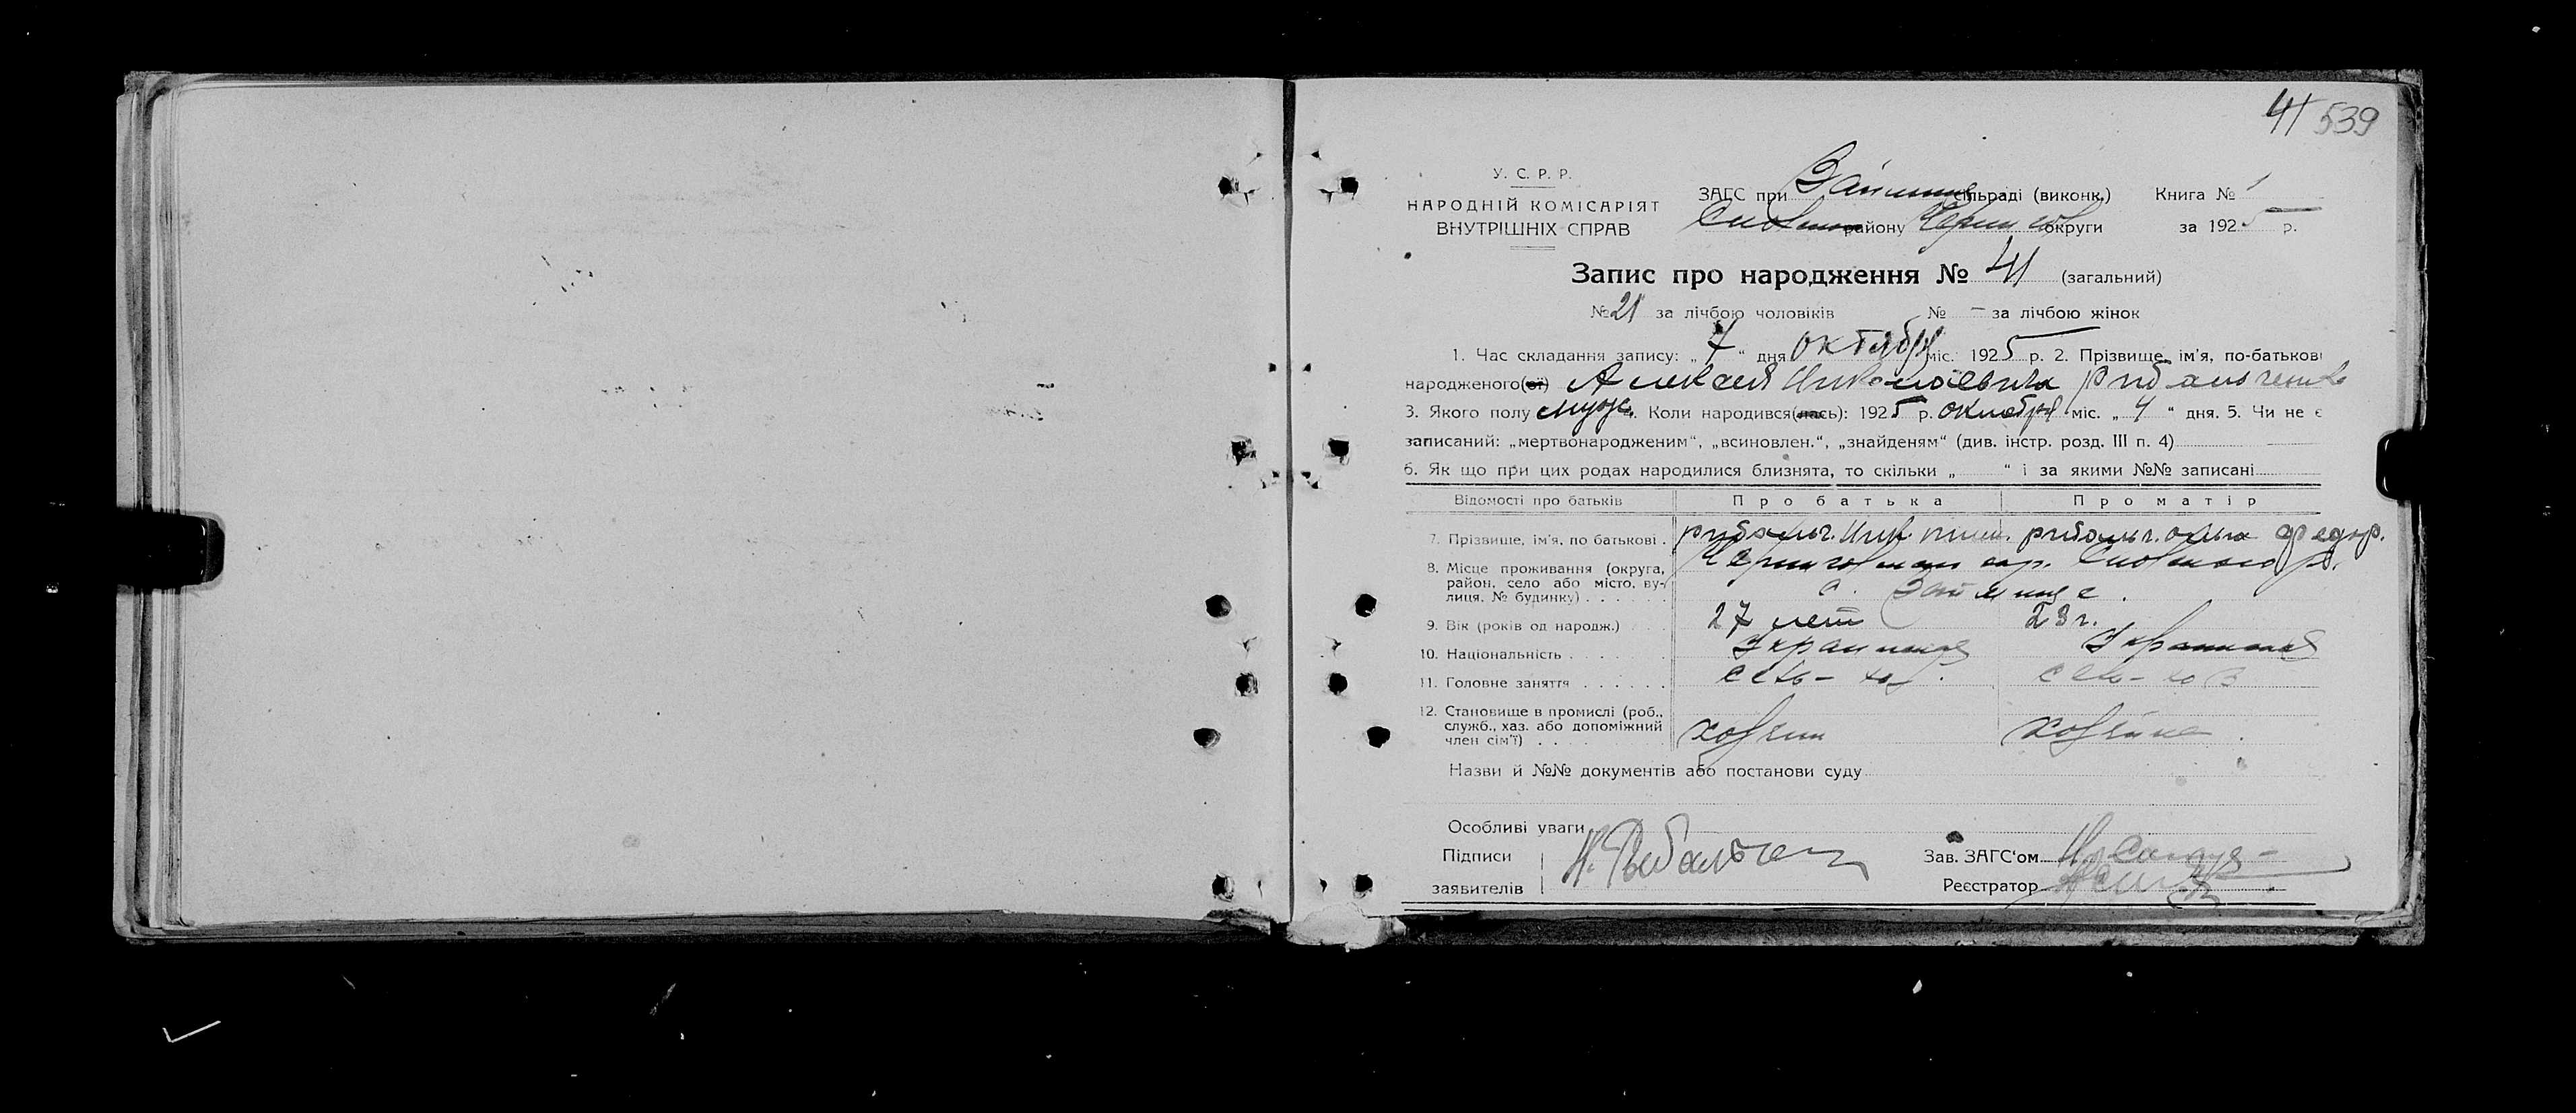 41 539
У. С. Р. Р.
НАРОДНІЙ КОМІСАРІЯТ
ВНУТРІШНІХ СПРАВ
ЗАГС при сільраді (виконк.) Книга № 1
району округи за 1925 р.
Запис про народження № 41 (загальний)
№ 21 за лічбою чоловіків № – за лічбою жінок
1. Час складання запису: „ 7 “ дня октября міс. 1925 р. 2. Прізвище, ім'я, по-батькові
народженого(ої) Алексея Николаевича Рибальченко
3. Якого полу муж. Коли народився(лась): 1925 р. октября міс. „ 4 “ дня. 5. Чи не є
записаний: „мертвонародженим“, „всиновлен.“, „знайденям“ (див. інстр. розд. III п. 4)
6. Як що при цих родах народилися близнята, то скільки „ “ і за якими №№ записані
Відомості про батьків Про батька Про матір
7. Прізвище, ім'я, по батькові . рибальч. Ник. рибальч. Ольга Федор.
8. Місце проживання (округа,
район, село або місто, ву-
лиця, № будинку) . . . . . . с.
9. Вік (років од народж.) 27 лет 23 г.
10. Національність . . . . . Украинец Украинка
11. Головне заняття . . . . . . сель-хоз. сель-хоз
12. Становище в промислі (роб.,
служб., хаз. або допоміжний
член сім'ї) . . . . . хозяин хозяйка.
Назви й №№ документів або постанови суду
Особливі уваги
Підписи Н. Рыбальчен Зав. ЗАГС‘ом
заявителів Реєстратор